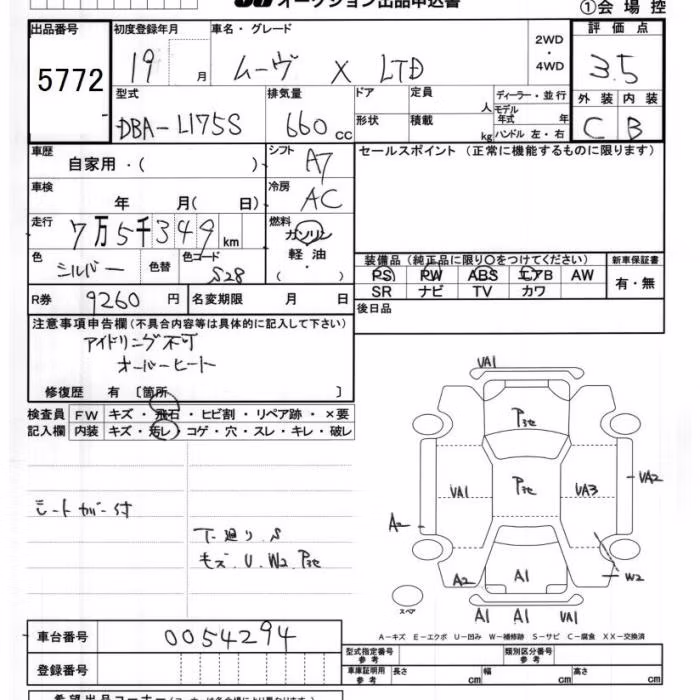 オークション出品申込書
①会場控
出品番号 初度登録年月 車名・グレード 2WD・4WD 評価点
5772 19 年 月 ムーヴ X LTD 3.5
型式 排気量 ドア 定員 人 ディーラー・並行 外装 内装
DBA-L175S 660cc 形状 積載 kg モデル年式 年 ハンドル 左・右 C B
車歴 自家用・( ) シフト A7 セールスポイント (正常に機能するものに限ります)
車検 年 月( 日) 冷房 AC
走行 7万5千349km 燃料 ガソリン
色 シルバー 色替 色コード S28 軽油・( )
装備品 (純正品に限り○をつけてください) 新車保証書
PS PW ABS エアB AW 有・無
SR ナビ TV カワ
R券 9260円 名変期限 月 日 後日品
注意事項申告欄(不具合内容等は具体的に記入して下さい)
アイドリング不可
オーバーヒート
修復歴 有 〔箇所 〕
検査員 FW キズ・飛石・ヒビ割・リペア跡・×要
記入欄 内装 キズ・汚レ・コゲ・穴・スレ・キレ・破レ
シートカバー付
下廻り.S
キズ.U.W2.P3セ
VA1
P3セ
VA1 P3セ VA3 VA2
A2
A2 A1 W2
スペア A1 A1 VA1
A-キズ E-エクボ U-凹み W-補修跡 S-サビ C-腐食 XX-交換済
車台番号 0054294
型式指定番号 参考 類別区分番号 参考
登録番号 車庫証明用 参考 長さ cm 幅 cm 高さ cm
希望出品コーナー